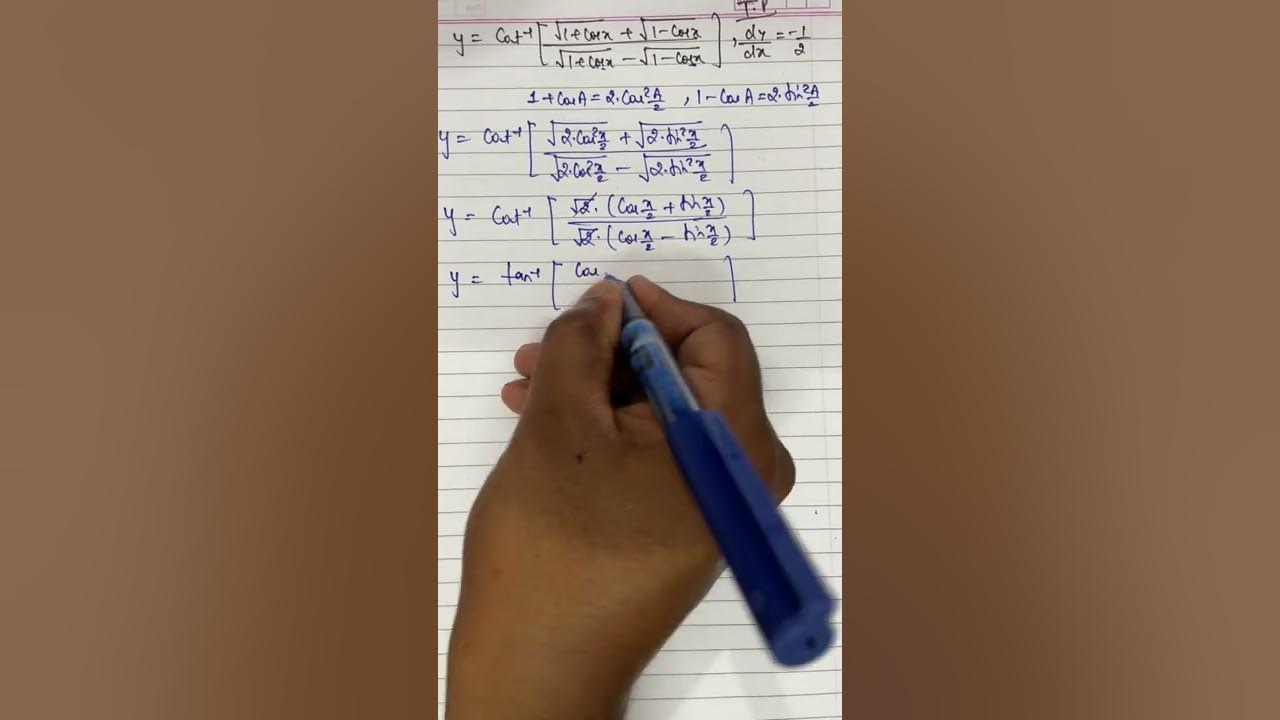 T.P
y = Cot⁻¹ [ √1+cosx + √1-cosx / √1+cosx - √1-cosx ] , dy/dx = -1/2
1 + cosA = 2·Cos²A/2 , 1 - cosA = 2·sin²A/2
y = Cot⁻¹ [ √2·cos²x/2 + √2·sin²x/2 / √2·cos²x/2 - √2·sin²x/2 ]
y = Cot⁻¹ [ √2·(Cosx/2 + sinx/2) / √2·(Cosx/2 - sinx/2) ]
y = tan⁻¹ [ Cos ]